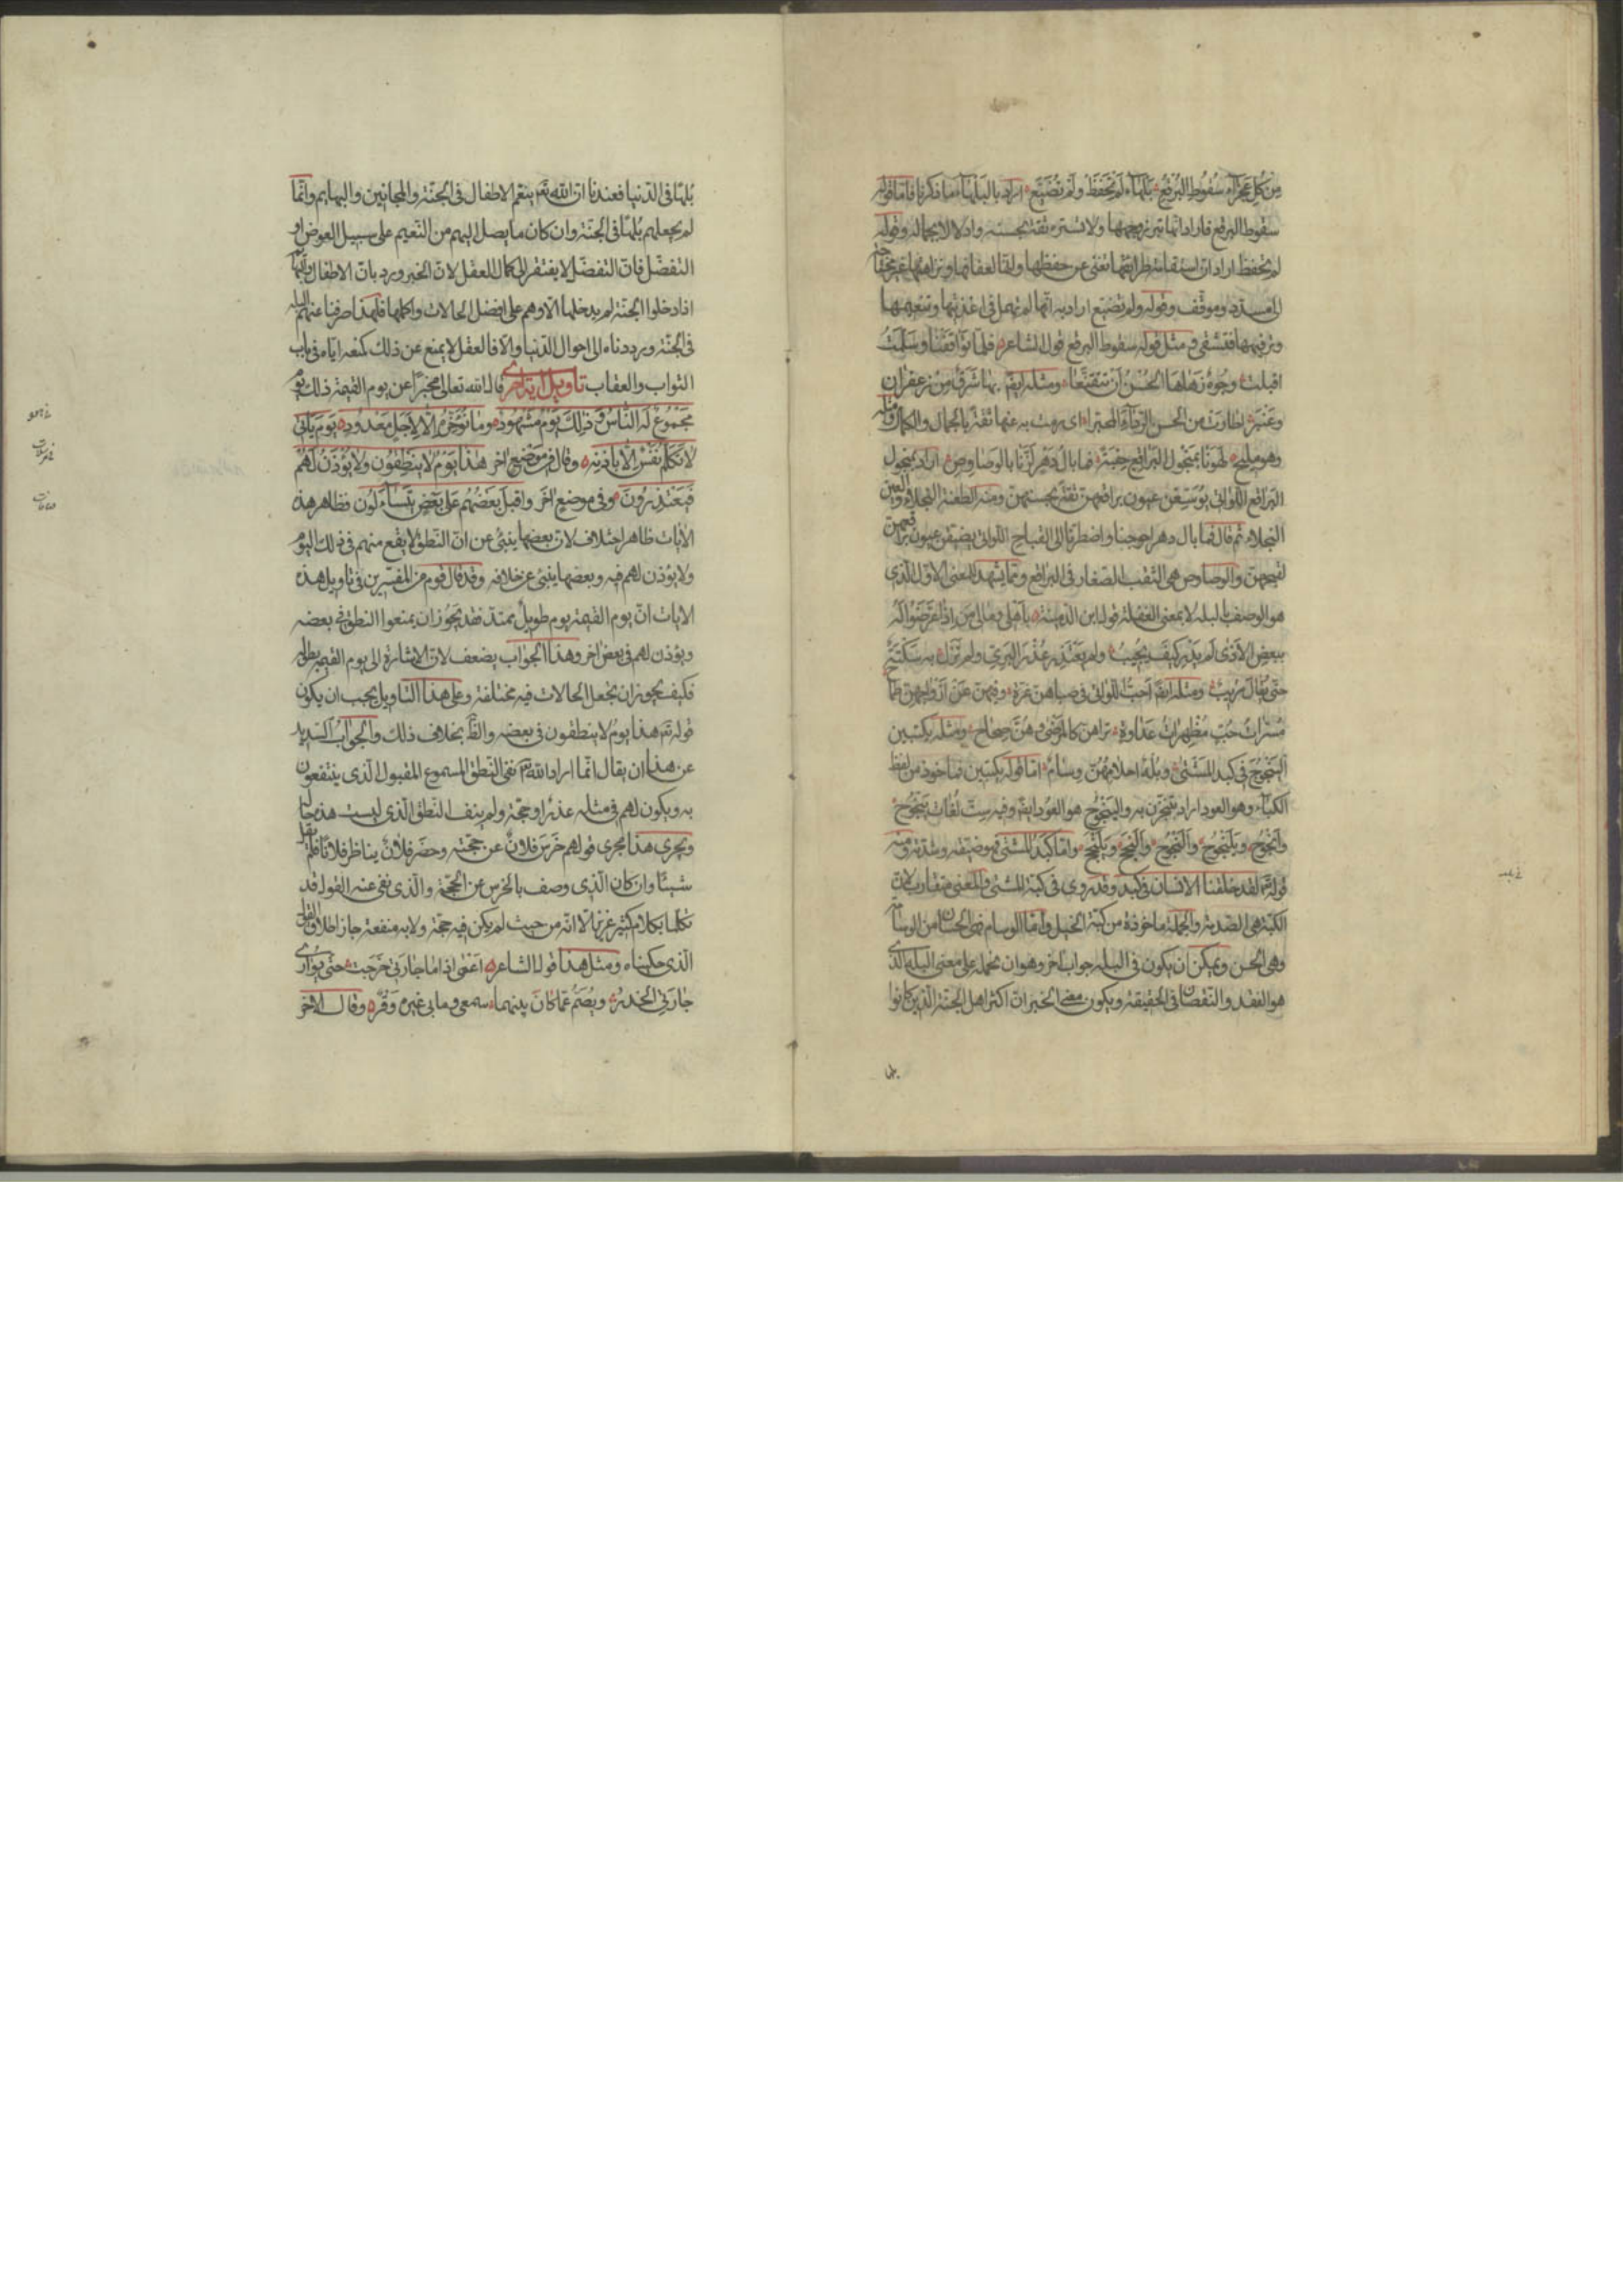 من كل عجزاء سقوط البرقع بلهاء لم تحفظ ولم تضيع اراد بالبلهاء ما ذكرنا فاما قوله
سقوط البرقع فاراد انها تبرز وجهها ولا تستره ثقة بحسنه وادلالا بجماله وقوله
لم تحفظ اراد ان استقامة طرائقها تغنى عن حفظها وانها لعفافها ونزاهتها غير محتاجة
الى مسدد وموقف وقوله ولم تضيع اراد به انها لم تهمل فى اغذيتها وتنعيمها
وترفيهها فتشقى ومثل قوله سقوط البرقع قول الشاعر فلما تواقفنا وسلمت
اقبلت وجوه زهاها الحسن ان تتقنعا ومثله ايضا بها شرق من زعفران
وعنبر اطارت من الحسن الرداء المحبرا اى رمت به عنها ثقة بالجمال والكمال ومثله
وهو مليح لهونا بمنجول البراقع حقبة فما بال دهر لزنا بالوصاوص اراد بمنجول
البراقع اللواتى يوسعن عيون براقعهن ثقة بحسنهن ومنه الطعنة النجلاء والعين
النجلاء ثم قال فما بال دهر احوجنا واضطرنا الى القباح اللواتى يضيقن عيون براقعهن
لقبحهن والوصاوص هى الثقب الصغار فى البراقع ومما يشهد للمعنى الاول الذى
هو الوصف بالبله لا بمعنى الغفلة قول ابن الدمينة باهلى ومالى من اذا عرضوا له
ببعض الاذى لم يدر كيف يجيب ولم يعتذر عذر البرى ولم تزل به سكتة
حتى يقال مريب ومثله ايضا احب اللواتى فى صباهن غرة وفيهن عن ازواجهن طماح
مسرات حب مظهرات عداوة تراهن كالمرضى وهن صحاح ومثله يكتبين
الينجوج فى كبد المشتى وبله احلامهن وسام اما قوله يكتبين فماخوذ من لفظ
الكباء وهو العود اراد يتبخرن به والينجوج هو العود ايضا وفيه ست لغات ينجوج
وانجوج ويلنجوج والنجوج والنجج ويلنجج واما كبد المشتى فهو ضيقه وشدته ومنه
قوله تعالى لقد خلقنا الانسان فى كبد وقد روى فى كبة المشتى والمعنى متقارب لان
الكبة هى الصدمة والحملة ماخوذة من كبة الخيل واما الوسام فهى الحسان من الوسامة
وهى الحسن ويمكن ان يكون فى البله جواب اخر وهو ان يحمله على معنى البله الذى
هو الفقد والنقصان فى الحقيقة ويكون معنى الخبر ان اكثر اهل الجنة الذين كانوا
بلها
بلها فى الدنيا فعندنا ان الله تعالى ينعم الاطفال فى الجنة والمجانين والبهايم وانما
لم يجعلهم بلها فى الجنة وان كان ما يصل اليهم من النعيم على سبيل العوض او
التفضل فان التفضل لا يفتقر الى كمال العقل لان الخبر ورد بان الاطفال والبهايم
اذا دخلوا الجنة لم يدخلها الا وهم على افضل الحالات واكملها فلهذا صرفنا عنهم البله
فى الجنة ورددناه الى احوال الدنيا والا فالعقل لا يمنع عن ذلك كمنعه اياه فى باب
الثواب والعقاب تاويل اية اخرى قال الله تعالى مخبرا عن يوم القيمة ذلك يوم
مجموع له الناس وذلك يوم مشهود وما نؤخره الا لاجل معدود يوم ياتى
لا تكلم نفس الا باذنه وقال فى موضع اخر هذا يوم لا ينطقون ولا يؤذن لهم
فيعتذرون وفى موضع اخر واقبل بعضهم على بعض يتسآءلون فظاهر هذه
الايات ظاهر اختلاف لان بعضها ينبئ عن ان النطق لا يقع منهم فى ذلك اليوم
ولا يؤذن لهم فيه وبعضها ينبئ عن خلافه وقد قال قوم من المفسرين فى تاويل هذه
الايات ان يوم القيمة يوم طويل ممتد فقد يجوز ان يمنعوا النطق فى بعضه
ويؤذن لهم فى بعض اخر وهذا الجواب يضعف لان الاشارة الى يوم القيمة بطوله
فكيف يجوز ان تجعل الحالات فيه مختلفة وعلى هذا التاويل يجب ان يكون
قوله تعالى هذا يوم لا ينطقون فى بعضه والظاهر بخلاف ذلك والجواب السديد
عن هذا ان يقال انما اراد الله تعالى نفى النطق المسموع المقبول الذى ينتفعون
به ويكون لهم فى مثله عذر او حجة ولم ينف النطق الذى ليست هذه حاله
ويجرى هذا مجرى قولهم خرس فلان عن حجته وحضر فلان يناظر فلانا فلم يقل
شيئا وان كان الذى وصف بالخرس عن الحجة والذى نفى عنه القول قد
تكلما بكلام كثير غزير الا انه من حيث لم يكن فيه حجة ولا به منفعة جاز اطلاق القول
الذى حكيناه ومثل هذا قول الشاعر اعمى اذا ما جارتى خرجت حتى يوارى
جارتى الخدر ويصم عما كان بينهما سمعى وما بى غيره وقر وقال الاخر